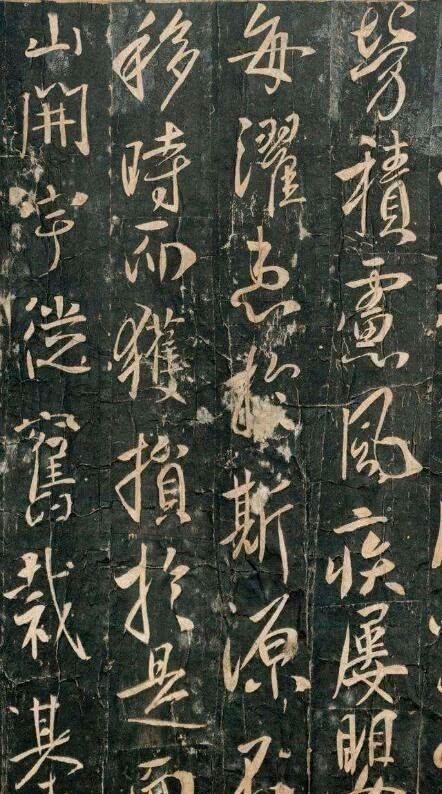 勞積慮風疾屢嬰
每濯患於斯源不
移時而獲損於是面
山開宇從舊裁基